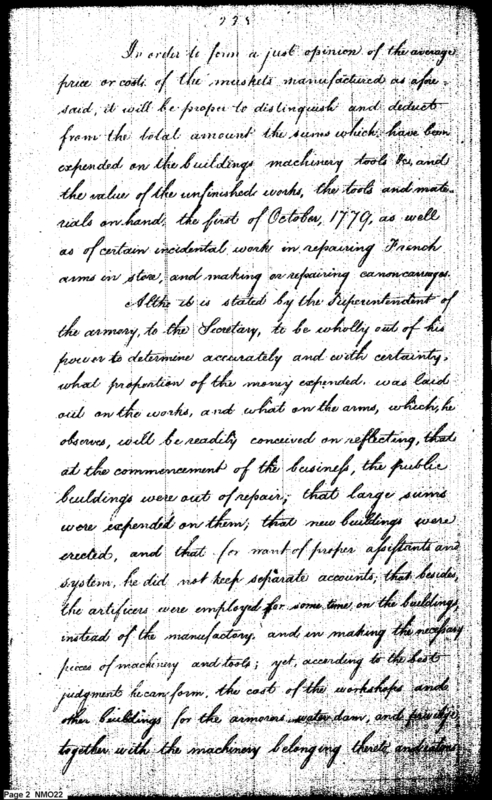 In order to form a just opinion of the average
price or costs of the muskets manufactured as afore-
said, it will be proper to distinguish and deduct
from the total amount the sums which have been
expended on the buildings machinery tools &c, and
the value of the unfinished works, the tools and mate-
rials on hand, the first of October, 1779, as well
as of certain incidental work in repairing French
arms in store, and making or repairing canon carriages.
Altho it is stated by the Superintendent of
the armory, to the Secretary, to be wholly out of his
power to determine accurately and with certainty,
what proportion of the money expended was laid
out on the works, and what on the arms, which, he
observes, will be readily conceived on reflecting, that
at the commencement of the business, the public
buildings were out of repair; that large sums
were expended on them; that new buildings were
erected, and that for want of proper assistants and
system, he did not keep separate accounts; that besides,
the artificers were employed for some time, on the buildings,
instead of the manufactory, and in making the necessary
pieces of machinery and tools; yet, according to the best
judgment he can form, the cost of the workshops and
other buildings for the armorers, water dam, and privilege
together with the machinery belonging thereto
Page 2 NMO22